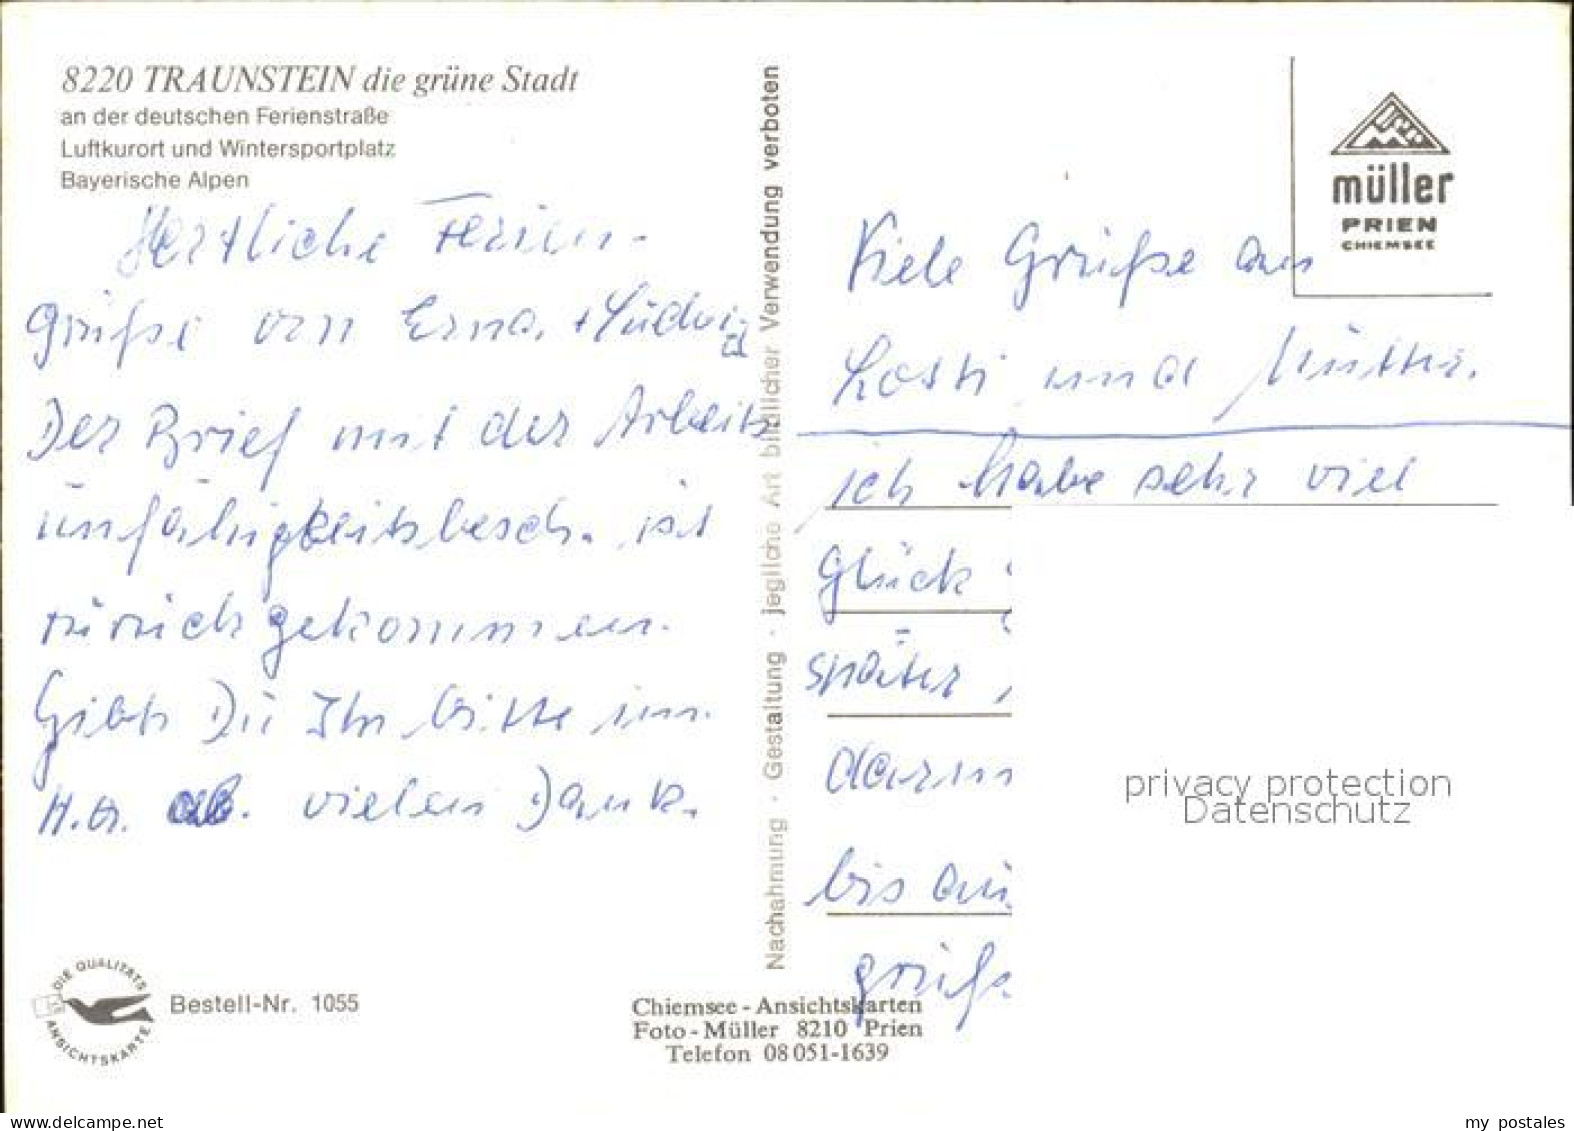 8220 TRAUNSTEIN die grüne Stadt
an der deutschen Ferienstraße
Luftkurort und Wintersportplatz
Bayerische Alpen
Herzliche Ferien-
grüße von Erna + Ludwig
Der Brief mit der Arbeits
unfähigkeitsbesch. ist
zurück gekommen.
Gibst Du Ihn bitte im
H.A. ab. vielen Dank.
DIE QUALITÄTS
ANSICHTSKARTE
Bestell-Nr. 1055
Nachahmung · Gestaltung · jegliche Art bildlicher Verwendung verboten
Chiemsee - Ansichtskarten
Foto - Müller 8210 Prien
Telefon 08 051-1639
müller
PRIEN
CHIEMSEE
Viele Grüße aus
und Mutter.
ich habe sehr viel
Glück
später
darum
bis
grüß
privacy protection
Datenschutz
my postales